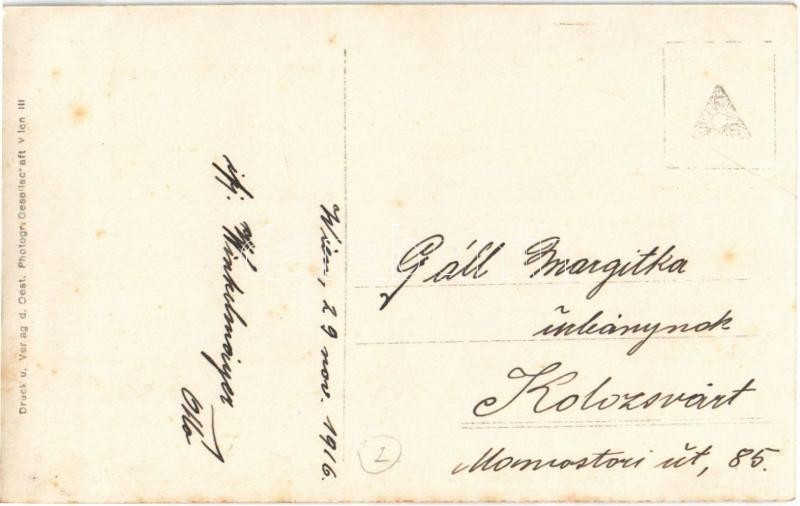 Druck u. Verlag d. Oest. Photogr. Gesellschaft Wien III
ifj. Winkelmayer
Ottó
Wien, 29 nov. 1916.
Gáll Margitka
úrleánynak
Kolozsvárt
Monostori út, 85.
1